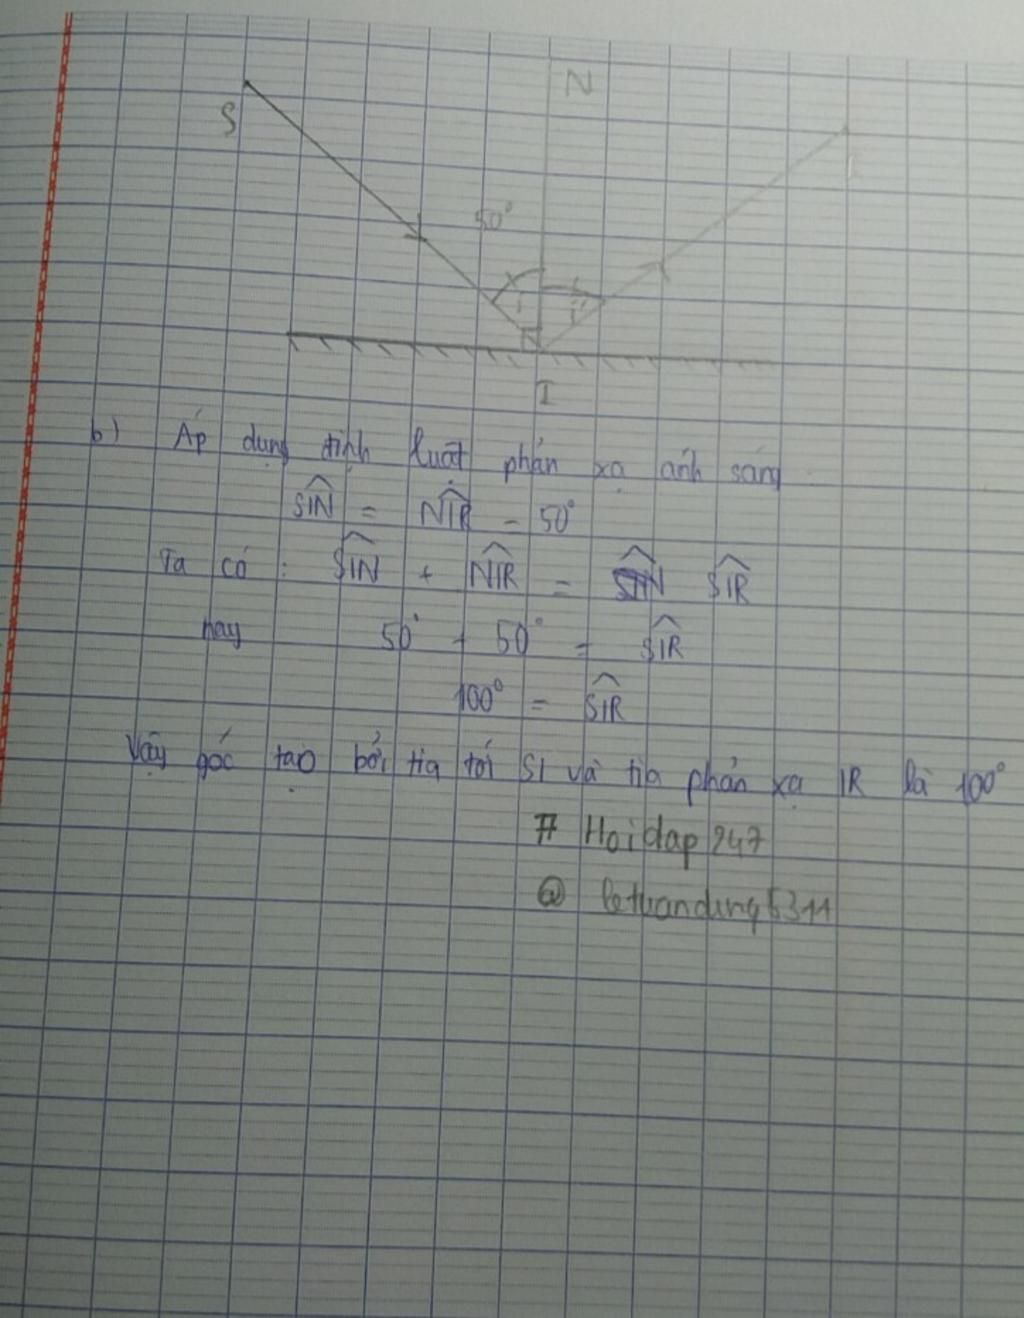 S
N
50°
i
i'
I
b) Áp dụng định luật phản xạ ánh sáng
SIN = NIR = 50°
Ta có: SIN + NIR = SIR
hay 50° + 50° = SIR
100° = SIR
Vậy góc tạo bởi tia tới SI và tia phản xạ IR là 100°
# Hoidap247
@ letuandung5311